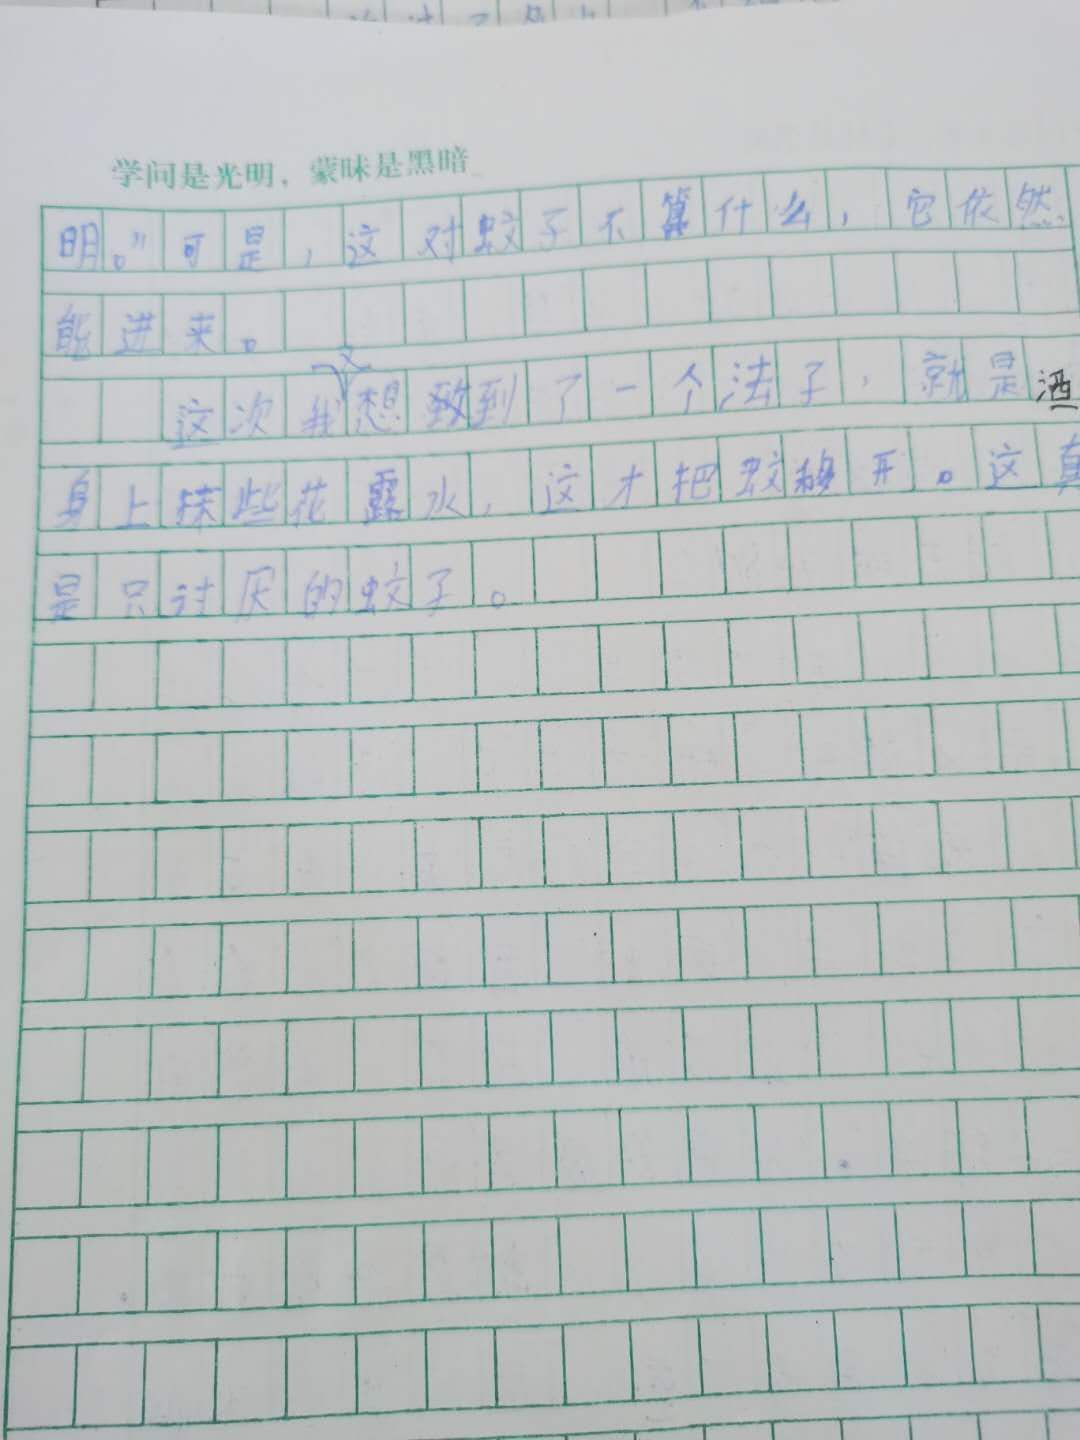 学问是光明，蒙昧是黑暗
明。”可是，这对蚊子不算什么，它依然
能进来。
这次我又想到了一个法子，就是洒
身上抹些花露水，这才把蚊移开。这真
是只讨厌的蚊子。